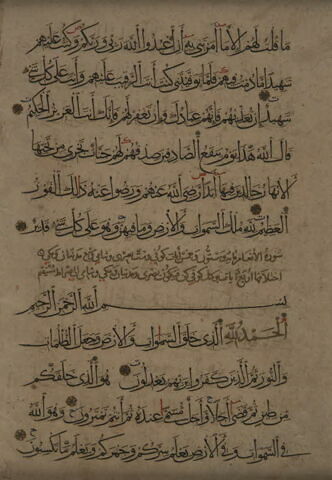 ما قلت لهم إلا ما أمرتني به أن اعبدوا الله ربي وربكم وكنت عليهم
شهيدا ما دمت فيهم فلما توفيتني كنت أنت الرقيب عليهم وأنت على كل شيء
شهيد إن تعذبهم فإنهم عبادك وإن تغفر لهم فإنك أنت العزيز الحكيم
قال الله هذا يوم ينفع الصادقين صدقهم لهم جنات تجري من تحتها
الأنهار خالدين فيها أبدا رضي الله عنهم ورضوا عنه ذلك الفوز
العظيم لله ملك السموات والأرض وما فيهن وهو على كل شيء قدير
سورة الأنعام مائة وستون و
بسم الله الرحمن الرحيم
الحمد لله الذي خلق السموات والأرض وجعل الظلمات
والنور ثم الذين كفروا بربهم يعدلون هو الذي خلقكم
من طين ثم قضى أجلا وأجل مسمى عنده ثم أنتم تمترون وهو الله
في السموات وفي الأرض يعلم سركم وجهركم ويعلم ما تكسبون